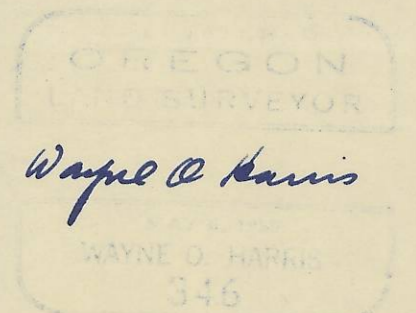 OREGON
LAND SURVEYOR
Wayne O Harris
WAYNE O. HARRIS
346